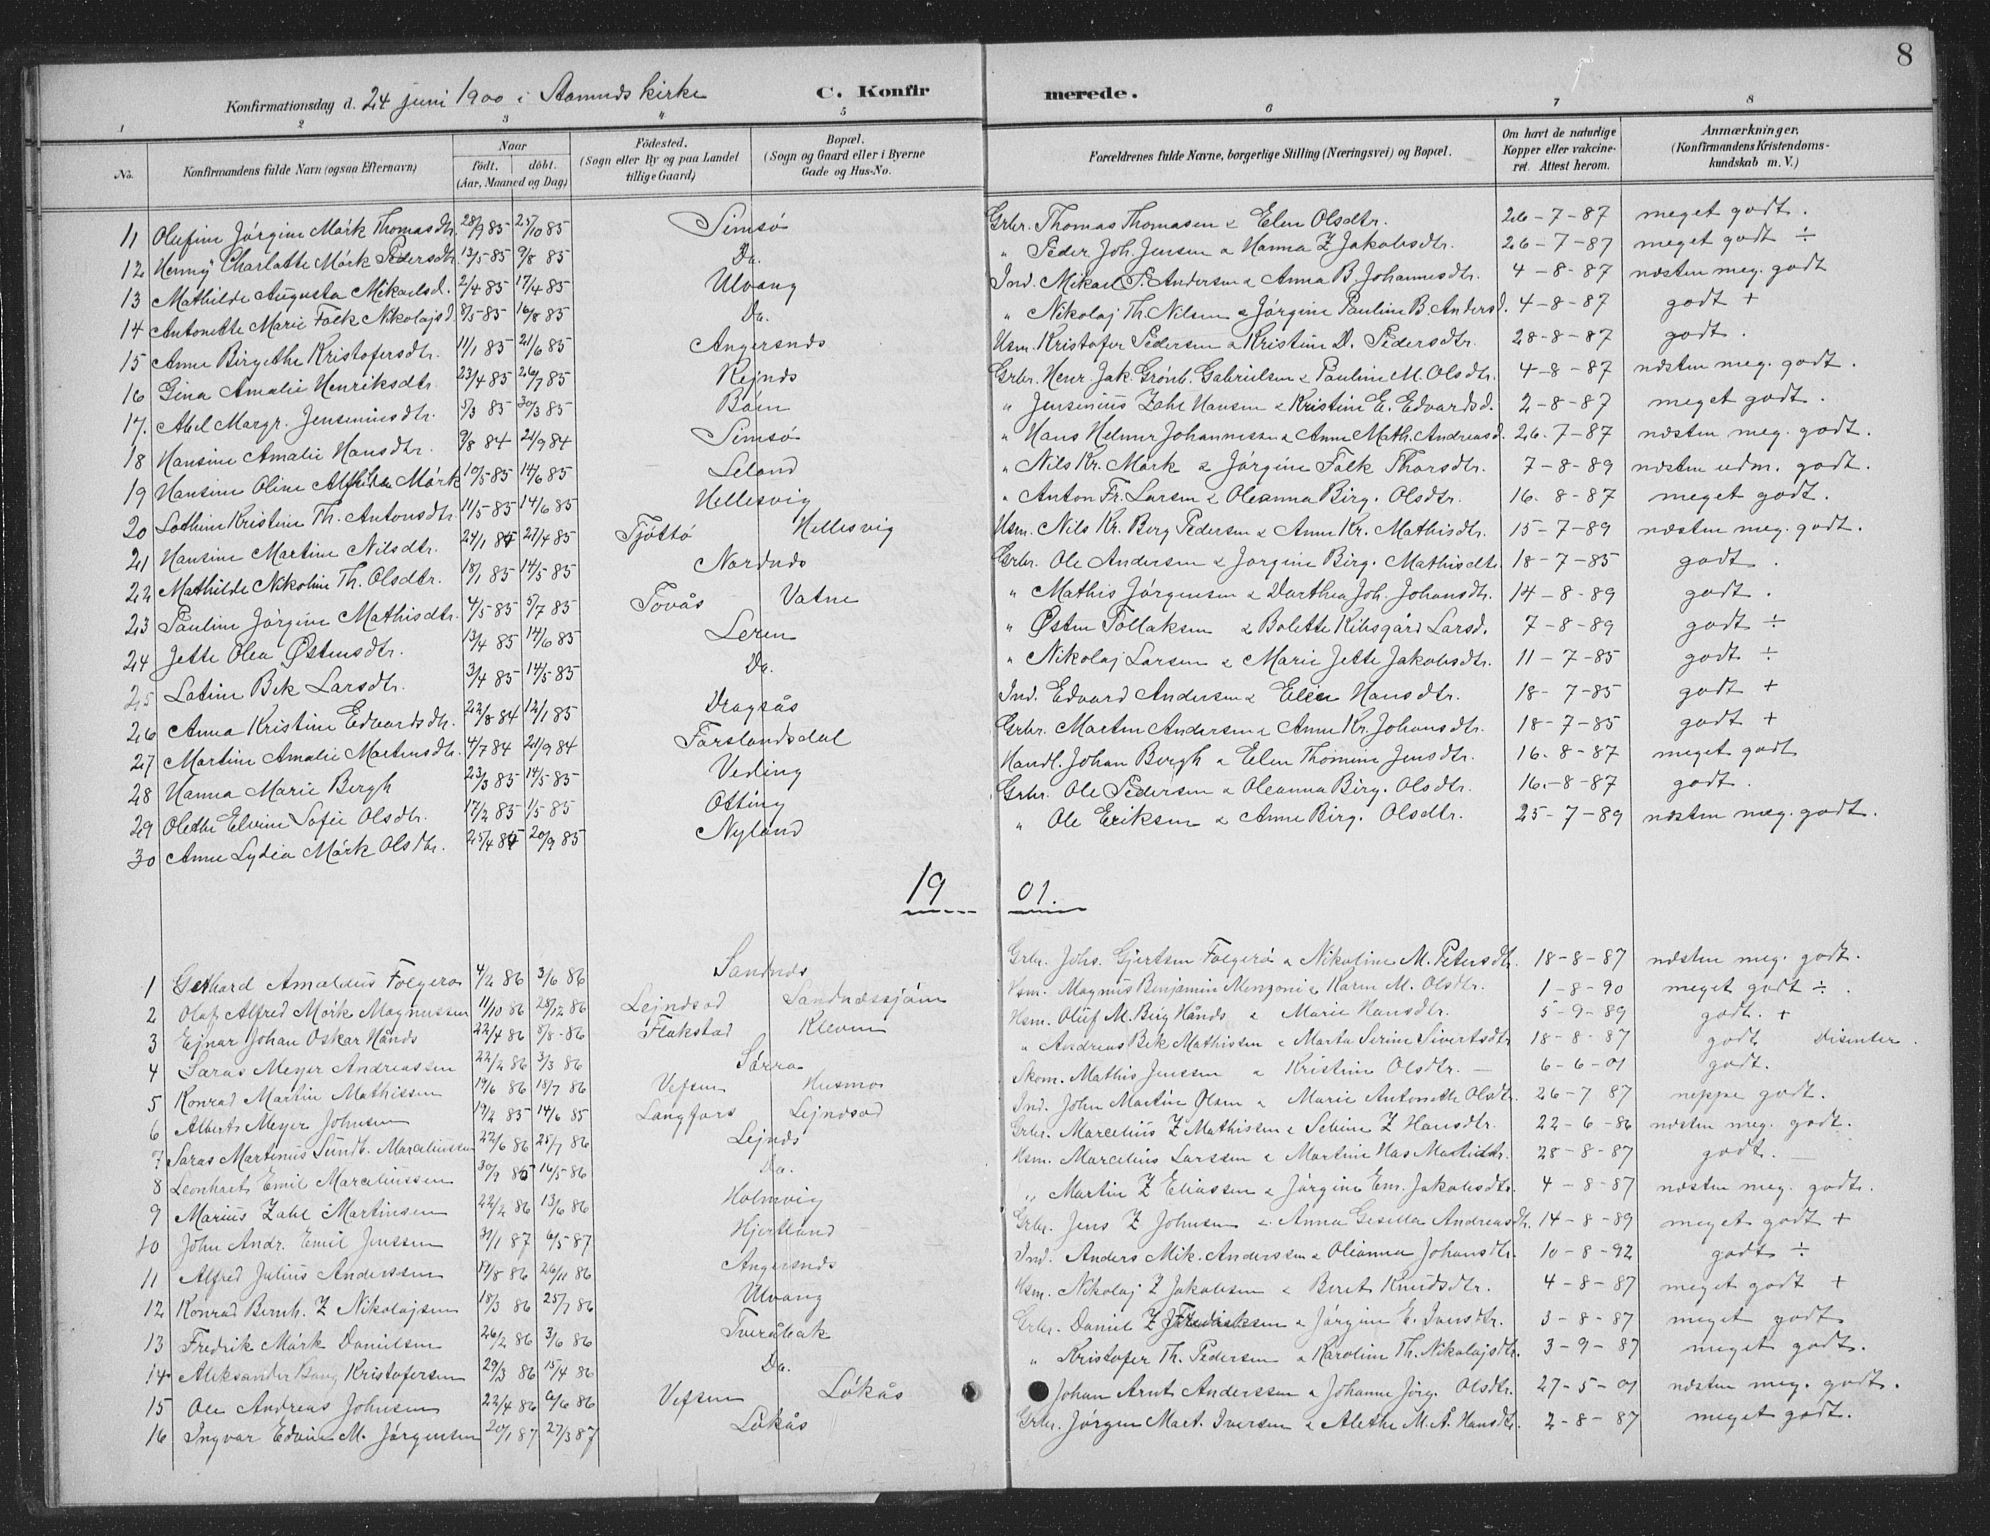 8
Konfirmationsdag d. 24 juni 1900 i Stamnes kirke C. Konfirmerede.
1 2 3 4 5 6 7 8
No. Konfirmandens fulde Navn (ogsaa Efternavn) Naar født. døbt. (Aar, Maaned og Dag) Fødested. (Sogn eller By og paa Landet tillige Gaard) Bopæl. (Sogn og Gaard eller i Byerne Gade og Hus-No. Forældrenes fulde Navne, borgerlige Stilling (Næringsvei) og Bopæl. Om havt de naturlige Kopper eller vaccineret. Attest herom. Anmærkninger, (Konfirmandens Kristendomskundskab m. V.)
11 Olufine Jørgine Mørk Thomasdtr. 28/9 85 25/10 85 Simsø Grbr. Thomas Thomasen & Elen Olsdtr. 26-7-87 meget godt.
12 Henny Charlotte Mørk Pedersdtr. 13/5 85 9/8 85 Do. " Peder Joh. Jensen & Hanna Z Jakobsdtr. 26-7-87 meget godt ÷
13 Mathilde Augusta Mikaelsd. 2/4 85 17/4 85 Ulvang Ind. Mikael P. Andersen & Anna B. Johannesdtr. 4-8-87 næsten meg. godt
14 Antonette Marie Falk Nikolajsd. 8/5 85 16/8 85 Do. " Nikolaj Th. Nilsen & Jørgine Pauline B. Andersd. 4-8-87 godt +
15 Anne Birgethe Kristofersdtr. 11/1 85 21/6 85 Angersnes Hsm. Kristofer Pedersen & Kristine D. Pedersdtr. 28-8-87 godt.
16 Gina Amalie Henriksdtr. 23/4 85 26/7 85 Rejnes Grbr. Henr. Jak. Grønb. Gabrielsen & Pauline M. Olsdtr. 4-8-87 næsten meg. godt.
17. Abel Margr. Jenseniusdtr. 5/3 85 30/3 85 Baen " Jensenius Zahl Hansen & Kristine E. Edvardsd. 2-8-87 meget godt.
18 Hansine Amalie Hansdtr. 9/8 84 21/9 84 Simsø " Hans Helmer Johannessen & Anne Math. Andreasd. 26-7-87 næsten meg. godt.
19 Hansine Oline Alfhilda Mørk 10/5 85 14/6 85 Leland " Nils Kr. Mørk & Jørgine Falk Thorsdtr. 7-8-89 næsten udm. godt.
20 Lothine Kristine Th. Antonsdtr. 11/5 85 14/6 85 Hellesvig " Anton Fr. Larsen & Oleanna Birg. Olsdtr. 16-8-87 meget godt.
21 Hansine Martine Nilsdtr. 24/1 85 21/4 85 Tjøttø Hellesvig Hsm. Nils Kr. Berg Pedersen & Anne Kr. Mathisdtr. 15-7-89 næsten meg. godt.
22 Mathilde Nikoline Th. Olsdtr. 18/1 85 14/5 85 Nordnes Grbr. Ole Andersen & Jørgine Birg. Mathisdtr. 18-7-85 godt.
23 Pauline Jørgine Mathisdtr. 4/5 85 5/7 85 Tovås Vatne " Mathis Jørgensen & Dorthea Joh. Johansdtr. 14-8-89 godt.
24 Jette Olea Østensdtr. 13/4 85 14/6 85 Leren " Østen Tollaksen & Bolette Kibsgård Larsd. 7-8-89 godt ÷
25 Latine Bek Larsdtr. 3/4 85 14/5 85 Do. " Nikolaj Larsen & Marie Jette Jakobsdtr. 11-7-85 godt ÷
26 Anna Kristine Edvardsdtr. 22/8 84 12/1 85 Dragsås Ind. Edvard Andersen & Elen Hansdtr. 18-7-85 godt +
27 Martine Amalie Martensdtr. 4/7 84 21/9 84 Forslandsdal Grbr. Marten Andersen & Anne Kr. Johansdtr. 18-7-85 godt +
28 Hanna Marie Bergh 23/3 85 14/5 85 Veding Handl. Johan Bergh & Elen Thomine Jensdtr. 16-8-87 meget godt
29 Olethe Elvine Sofie Olsdtr. 17/2 85 1/5 85 Otting Grbr. Ole Pedersen & Oleanna Birg. Olsdtr. 16-8-87 godt.
30 Anne Lydia Mørk Olsdtr. 25/4 85 20/9 85 Nyland " Ole Eriksen & Anne Birg. Olsdtr. 25-7-89 næsten meg. godt.
1901.
1 Gethard Arnoldus Folgerø 4/2 86 3/6 86 Sandnes Grbr. Johs. Gjertsen Folgerø & Nikoline M. Petersdtr. 18-8-87 næsten meg. godt.
2 Olaf Alfred Mørk Magnussen 11/10 86 28/12 86 Lejndsod Sandnæssjøen Hsm. Magnus Benjamin Menzoni & Karen M. Olsdtr. 1-8-90 meget godt ÷.
3 Ejnar Johan Oskar Hånds 22/4 86 8/8 86 Flakstad Kleven Hsm. Oluf M. Berg Hånds & Marie Hansdtr. 5-9-89 godt. +
4 Saras Meyer Andreassen 22/2 86 3/3 86 Sørra " Andreas Bek Mathissen & Marta Serine Sivertsdtr 18-8-87 godt Disenter.
5 Konrad Martin Mathissen 19/6 86 18/7 86 Vefsen Husmo Skom. Mathis Jenssen & Kristine Olsdtr. — 6-6-01 godt.
6 Alberts Meyer Johnsen 19/2 85 14/6 85 Langfors Lejndsod Ind. John Martin Olsen & Marie Antonette Olsdtr. 26-7 87 neppe godt.
7 Saras Martinus Sundb. Marceliussen 22/6 86 25/7 86 Lejnes Grbr. Marcelius Z Mathissen & Seline Z Hansdtr. 22-6-86 næsten meg. godt.
8 Leonhart Emil Marceliussen 30/9 85 16/5 86 Do. Hsm. Marcelius Larssen & Martine Has Mathisdtr. 28-8-87 godt. —
9 Marius Zahl Martinsen 22/2 86 13/6 86 Holmvig " Martin Z Eliassen & Jørgine Em. Jakobsdtr. 4-8-87 næsten meg. godt.
10 John Andr. Emil Jenssen 31/1 87 6/5 87 Hjertland Grbr. Jens Z Johnsen & Anna Gesella Andreasdtr. 14-8-89 meget godt +
11 Alfred Julius Anderssen 19/8 86 26/11 86 Angersnes Ind. Anders Mik. Anderssen & Oleanna Johansdtr. 10-8-92 godt ÷
12 Konrad Bernh. Z Nikolajsen 18/3 86 25/7 86 Ulvang Hsm. Nikolaj Z Jakobsen & Beret Knudsdtr. 4-8-87 meget godt +
13 Fredrik Mørk Danielsen 26/2 86 3/6 86 Tveråbak Grbr. Daniel Z Fredriksen & Jørgine E. Iversdtr. 3-8-87 meget godt
14 Aleksander Bang Kristofersen 29/3 86 15/4 86 Do. " Kristofer Th. Pedersen & Karoline Th. Nikolajsdtr. 3-9-87 meget godt.
15 Ole Andreas Johnsen 22/4 86 6/6 86 Vefsen Løkås Johan Arnt Anderssen & Johanne Jørg. Olsdtr. 27-5-01 næsten meg. godt.
16 Ingvar Edvin M. Jørgensen 20/1 87 27/3 87 Løkås Grbr. Jørgen Mart. Iversen & Alethe M. A. Hansdtr. 2-8-87 meget godt.